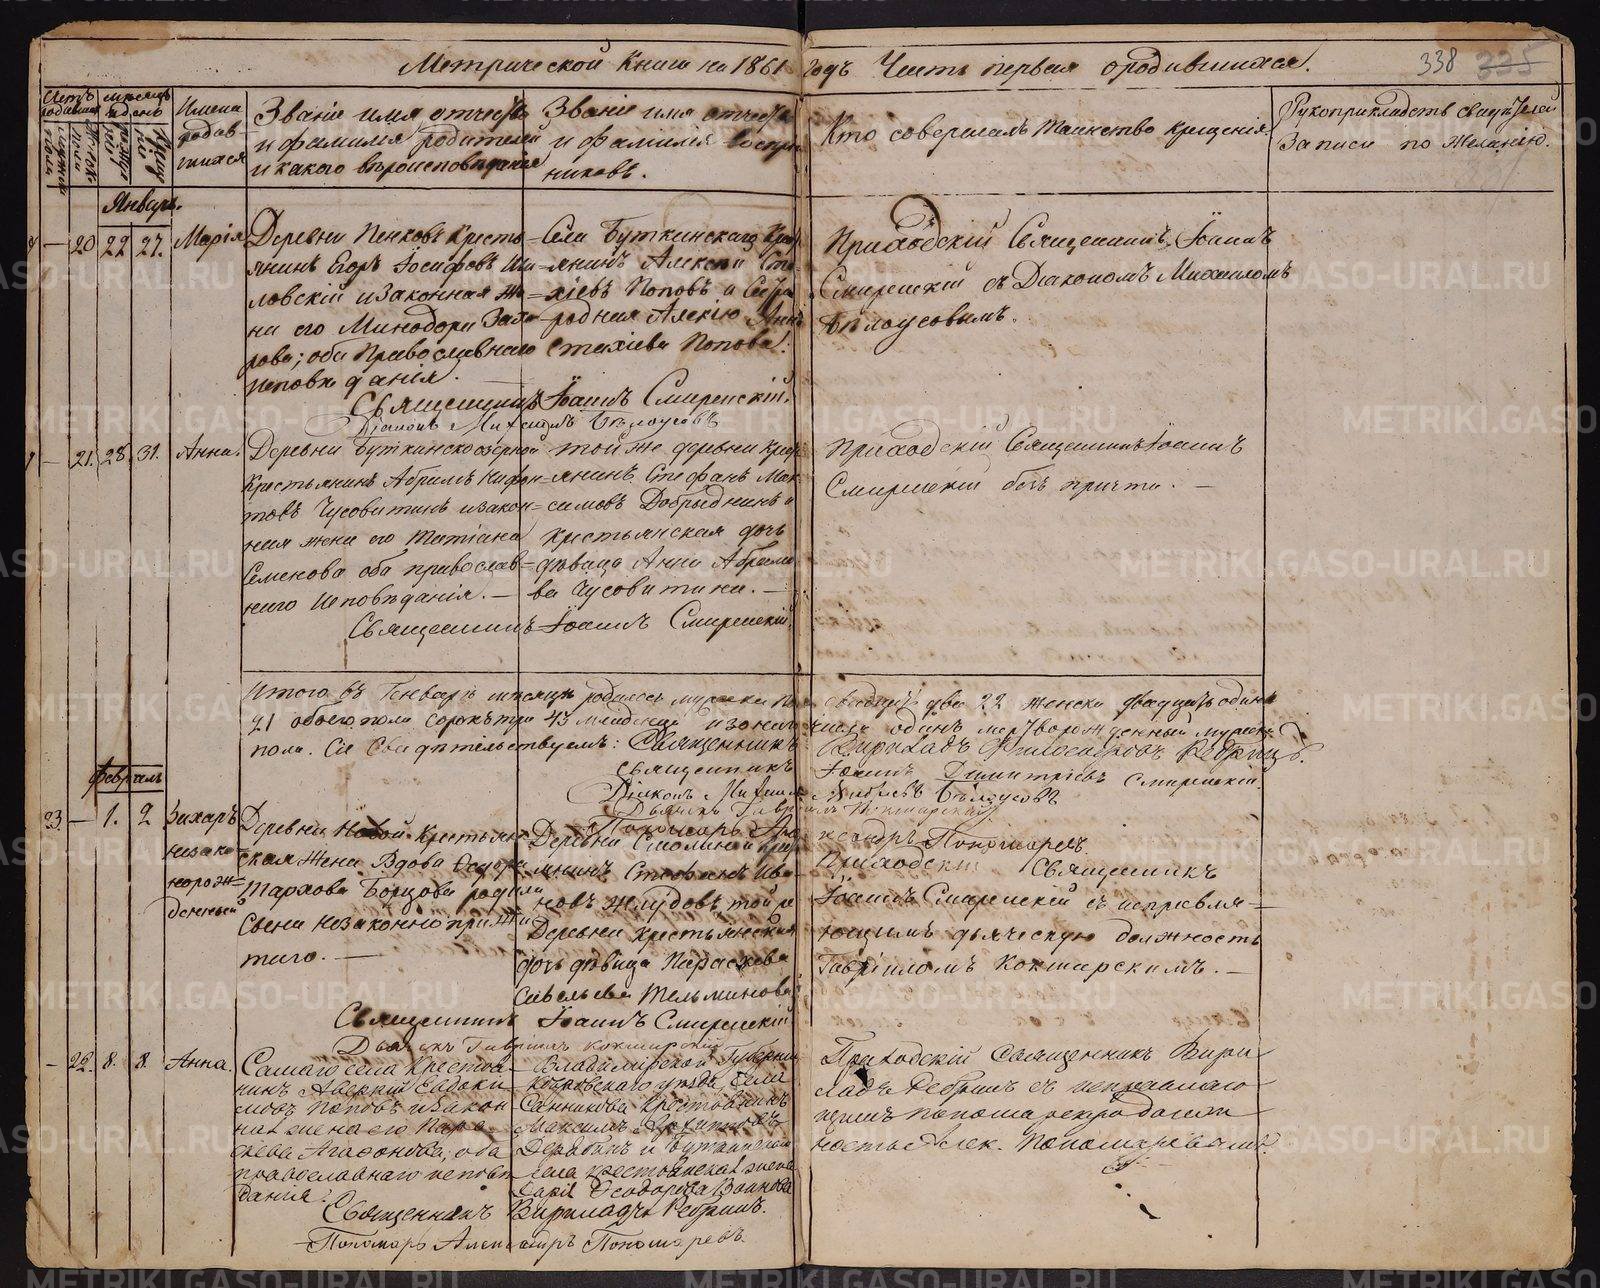 Метрической Книги на 1861 годъ Часть первая о родившихся.
338 335
Счетъ родившихся
мѣсяцъ и день
Имена родив-
шихся
Званіе имя отчество
и фамилія родителей
и какого вѣроисповѣданія
Званіе имя отчество
и фамилія воспри
никовъ.
Кто совершалъ таинство крещенія
Рукоприкладств свидѣтелей
Записи по желанію.
Январь.
20 22 27. Марія
Деревни Пенковъ Кресть-
янинъ Егоръ Іосифовъ Ши-
ловскій и законная же-
на его Минодора Заха-
рова; оба Православнаго
исповѣданія.
Села Буткинскаго Крес
янинъ Алексѣй Ста-
хіевъ Поповъ и Сестра
родная Алексію Анна
Стахіева Попова.
Приходскій Священникъ Іоаннъ
Смиренскій съ Діакономъ Михаиломъ
Бѣлоусовымъ.
Священникъ Іоаннъ Смиренскій.
Діаконъ Михаилъ Бѣлоусовъ
21. 28. 31. Анна.
Деревни Буткинскоозерной
Крестьянинъ Абрамъ Нифон-
товъ Чусовитинъ и закон-
ная жена его Татіана
Семенова оба православ-
наго исповѣданія. —
той же деревни Крес
янинъ Стефанъ Мак
симовъ Добрыднинъ и
крестьянская дочь
дѣвица Анна Абрамо
ва Чусовитина. —
Приходскій Священникъ Іоаннъ
Смиренскій безъ причта. —
Священникъ Іоаннъ Смиренскій.
Итого въ Генварѣ мѣсяцѣ родилось мужеска пола двадцать два 22 женска двадцать одинъ
21 обоего пола сорокъ три 43 младенца и з онаго числа одинъ мертворожденный мужеска
пола. Сіе Свидѣтельствуемъ: Священникъ Вирилладъ Филосоровъ Ребринъ.
Священникъ Іоаннъ Димитріевъ Смиренскій.
Діаконъ Михаилъ Бѣлоусовъ
Дьячекъ Гавріилъ Кокшарскій
Пономарь Александръ Пономаревъ
Февраль
23. — 1. 2 Захаръ
незако-
норож-
денный
Деревни Новой Крестьян
ская жена Вдова Ѳедора
Тархова Борцова родила
Сына незаконно прижи
таго. —
Деревни Смолиной крес
янинъ Стефанъ Ива
новъ Жлудовъ той же
Деревни крестьянская
дочь дѣвица Параскева
Савельева Тельминова
Приходскій Священникъ
Іоаннъ Смиренскій съ исправля-
ющимъ дьяческую должность
Гавріиломъ Кокшарскимъ. —
Священникъ Іоаннъ Смиренскій
Дьячекъ Гавріилъ Кокшарскій
— 22. 8. 8. Анна.
Самаго села Крестья-
нинъ Аверкій Евдоки-
мовъ Поповъ и закон
ная жена его Пара-
скева Агафонова, оба
православнаго исповѣ
данія.
Владимірской Губерніи
Ковровскаго уѣзда Села
Санникова крестьянинъ
Максимъ
и Буткинскаго
села крестьянская жена
Ѳеодорова
Приходскій Священникъ Вири
ладъ Ребринъ съ исправляю
щимъ пономарскую долж
ность Алек. Пономаревымъ.
Священникъ Вирилладъ Ребринъ.
Пономарь Александръ Пономаревъ.